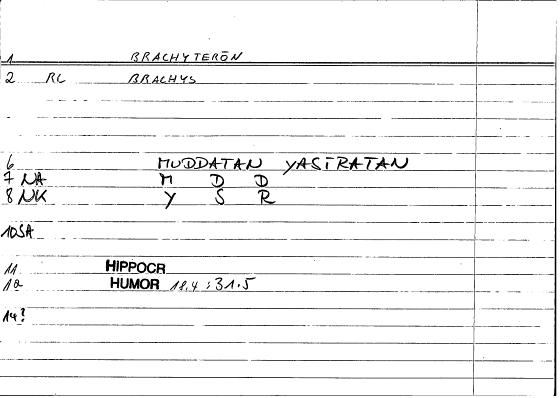 1 BRACHYTERŌN
2 RC BRACHYS
6 MUDDATAN YASIRATAN
7 NA M D D
8 NK Y S R
10SA
11 HIPPOCR
12 HUMOR 18.4 : 31.5
14?